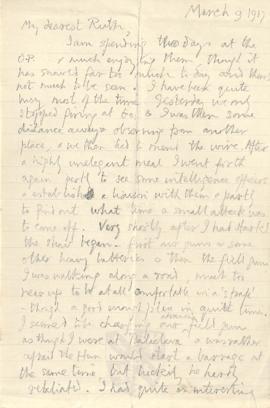 March 9 1917
My dearest Ruth,
I am spending two days at the
O.P. & much enjoying them, though it
has snowed far too much to day and there's
not much to be seen. I have been quite
busy most of the time. Yesterday we only
stopped firing at 6.0 & I was then some
distance away observing from another
place, & we then had to mend the wire. After
a highly inelegant meal I went forth
again partly to see some intelligence officers
& establish a liaison with them & partly
to find out what time a small attack was
to come off. Very shortly after I had started
the show began. First our guns & some
other heavy batteries & then the field guns
I was walking along a road much too
near up to be at all comfortable in a 'strafe'
- though a good enough place in quiet time.
I seemed to be charging our field guns
as though I were at Balaclava & was rather
afraid the Hun would start a barrage at
the same time but luckily he hardly
retaliated. I had quite an interesting